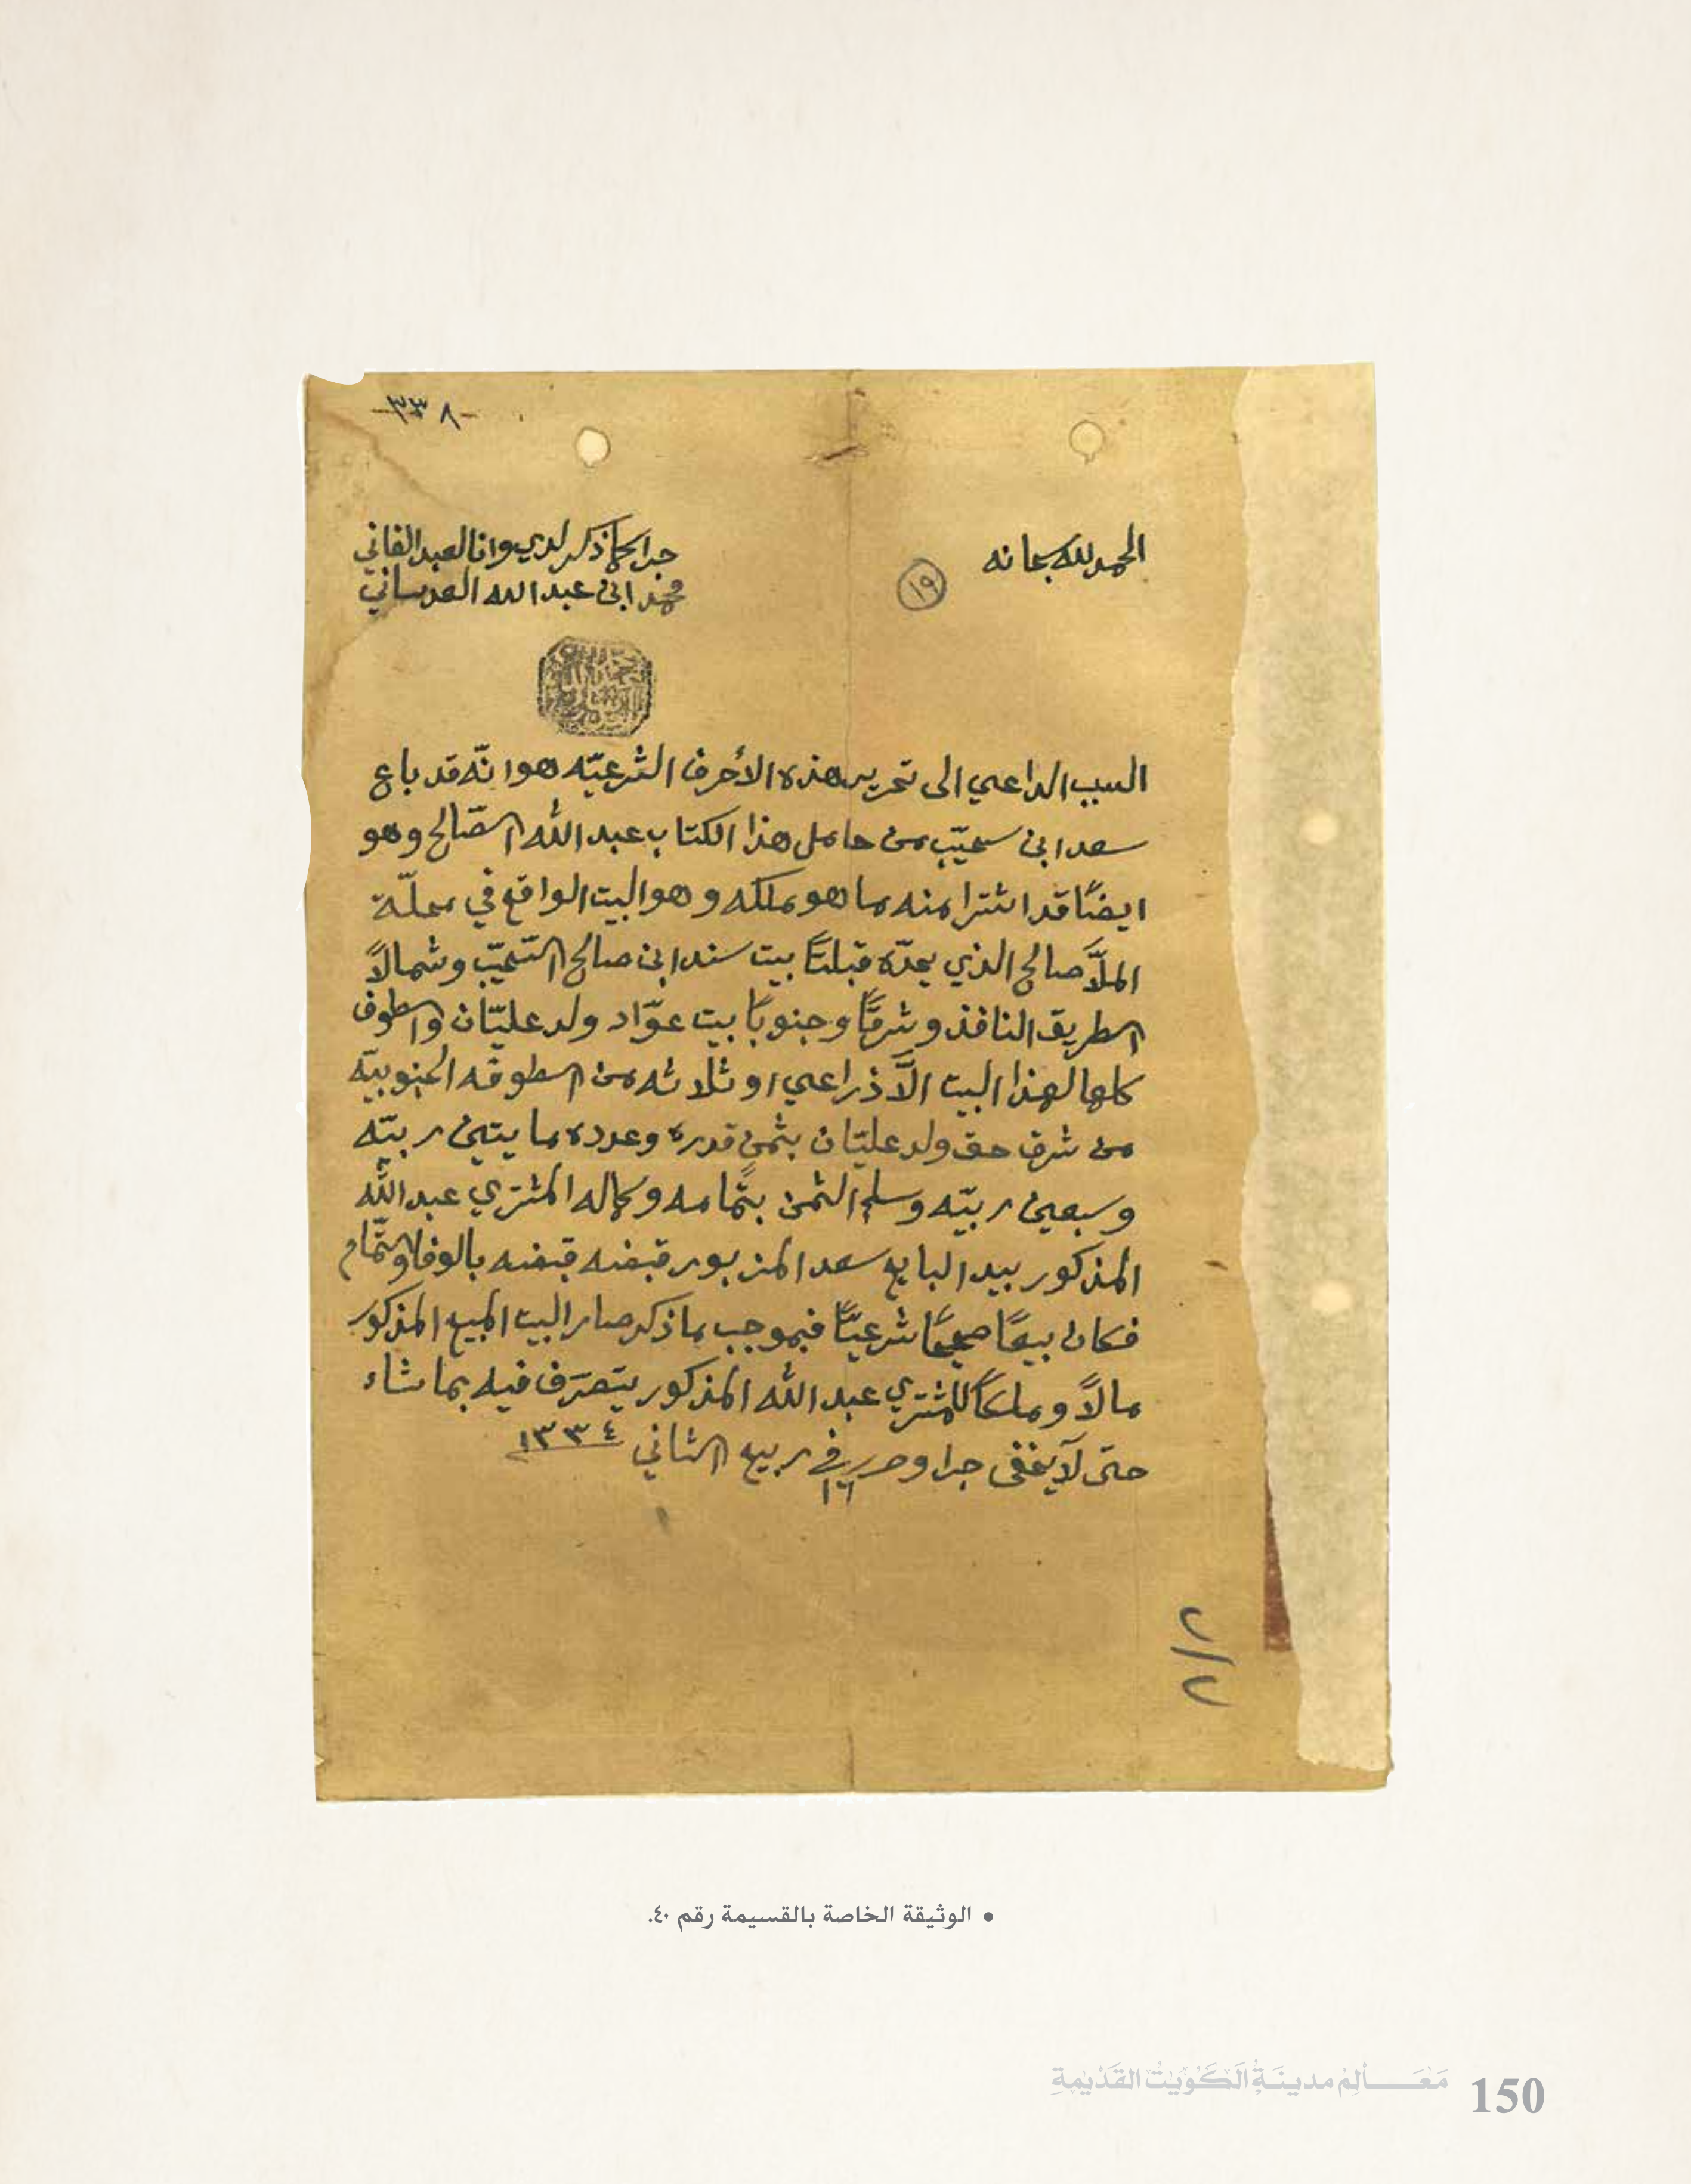 -٣٣٨-
الحمد لله سبحانه
١٩
جرا كما ذكر لدي وانا العبد الفاني
محمد ابن عبد الله العدساني
السبب الداعي الى تحرير هذه الأحرف الشرعيّه هو انّه قد باع
سعد ابن سحيّب من حامل هذا الكتاب عبد الله الصّالح وهو
ايضًا قد اشترا منه ما هو ملكه وهو البيت الواقع في محلّة
الملّا صالح الذي يحدّه قبلتًا بيت سند ابن صالح السّحيّب وشمالاً
الطريق النافذ وشرقًا وجنوبًا بيت عوّاد ولد عليّان والطوف
كلها لهذا البيت الاّ ذراعي او ثلاثه من الطوفه الجنوبيّه
من شرق حق ولد عليّان بثمنٍ قدره وعدده مايتين ربيّه
وسبعين ربيّه وسلم الثمن بتمامه وكماله المشتري عبد الله
المذكور بيد البايع سعد المزبور قبضه قبضه بالوفا والتّمام
فكان بيعًا صحيحًا شرعيًّا فبموجب ما ذكر صار البيت المبيع المذكور
مالاً وملكًا للمشتري عبد الله المذكور يتصرّف فيه بما شاء
حتى لا يخفى جرا وحرر في ١١ ربيع الثاني ١٣٣٤
٢/٢
• الوثيقة الخاصة بالقسيمة رقم ٤٠.
مَعَـــالِمُ مدينَةِ الكُوَيْت القَدْيمَةِ
150